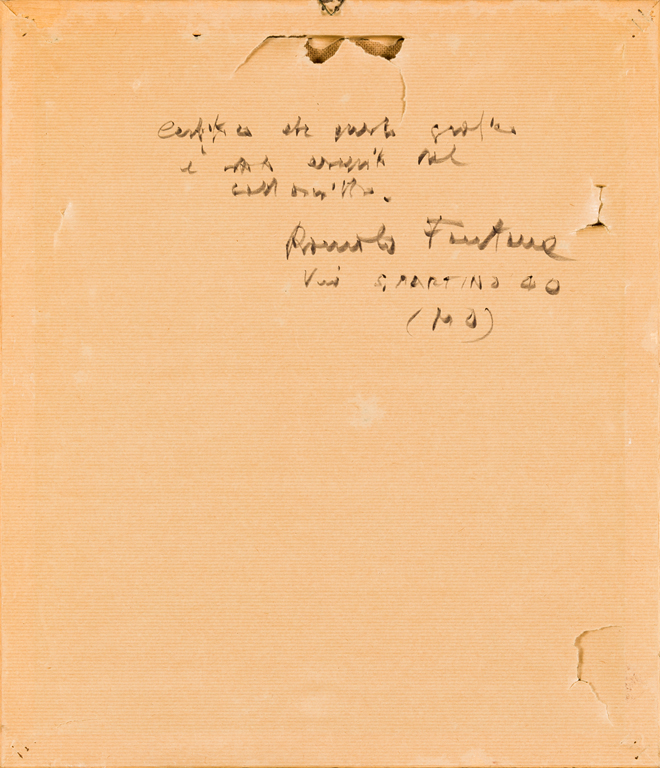 Certifico che questa grafica
è stata eseguita dal
sottoscritto.
Romolo Fontana
Via S. MARTINO 40
(MO)